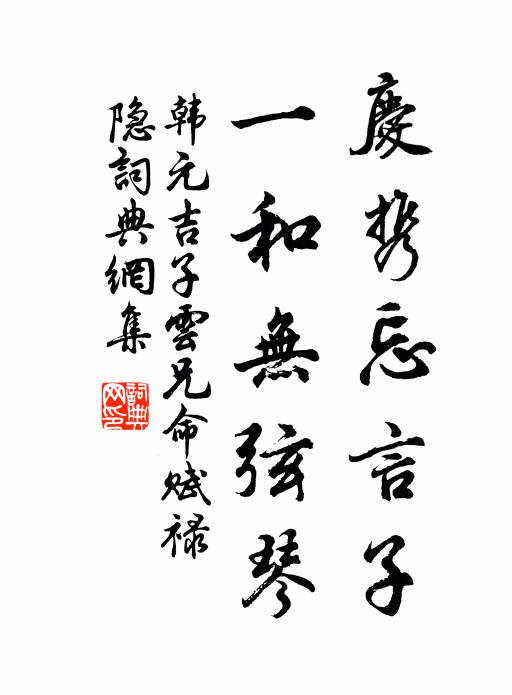 慶携忘言子
一和無弦琴
韩元吉子雲兄命赋禄
隐詞典網集
詞典网印